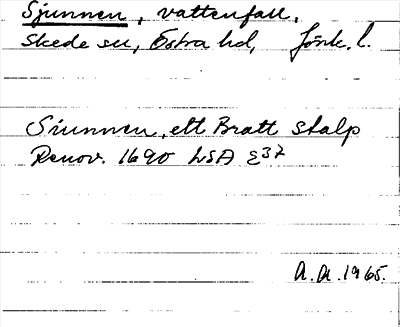 Sjunnen, vattenfall.
Skede sn, Östra hd, Jönk. l.
Siunnen, ett Bratt stalp
Renov. 1690 LSA E37
A.A. 1965.